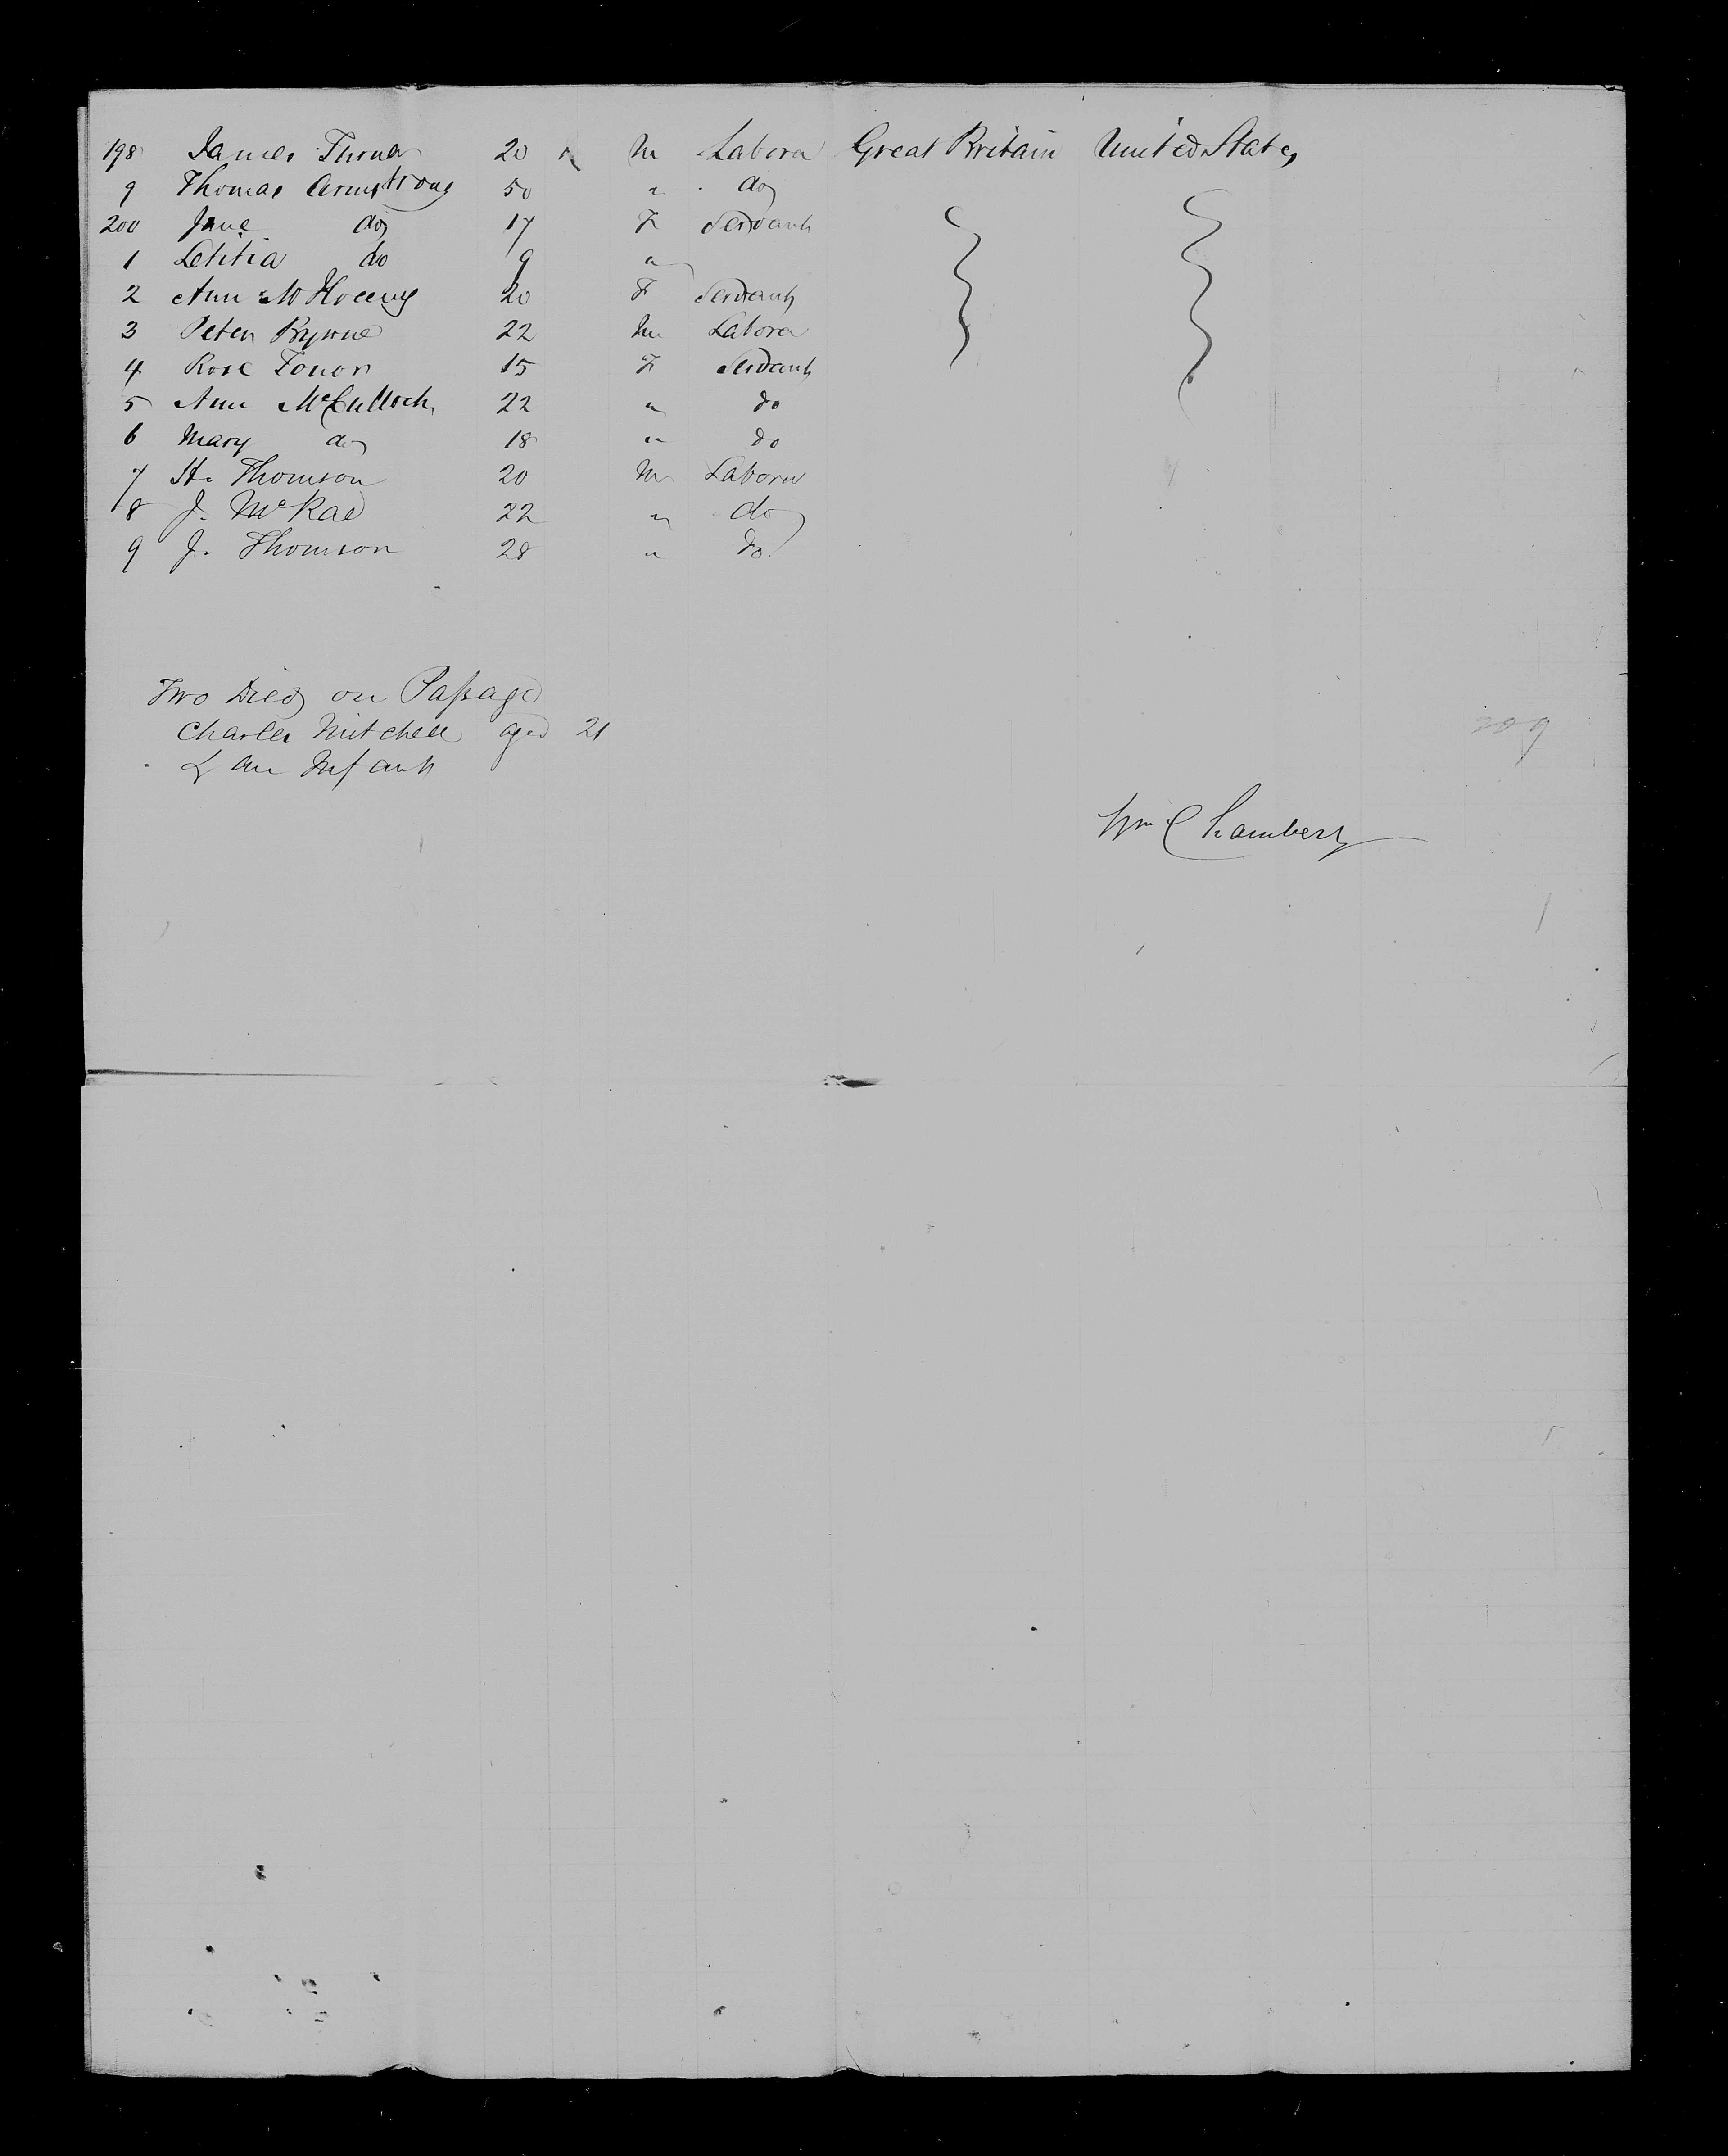 198 James 20 M Labora Great Britain United States
9 Thomas Armstrong 50 " do
200 Jane do 17 F Servant
1 Letitia do 9 "
2 Ann 20 F Servant
3 Peter Byrne 22 M Labora
4 Rose Fonor 15 F Servant
5 Ann McCulloch 22 " do
6 Mary do 18 " do
7 H. Thomson 20 M Labora
8 J. McRae 22 " do
9 J. Thomson 28 " do
Two Died on Passage
Charles Mitchell aged 21
& an Infant
209
Wm Chambers